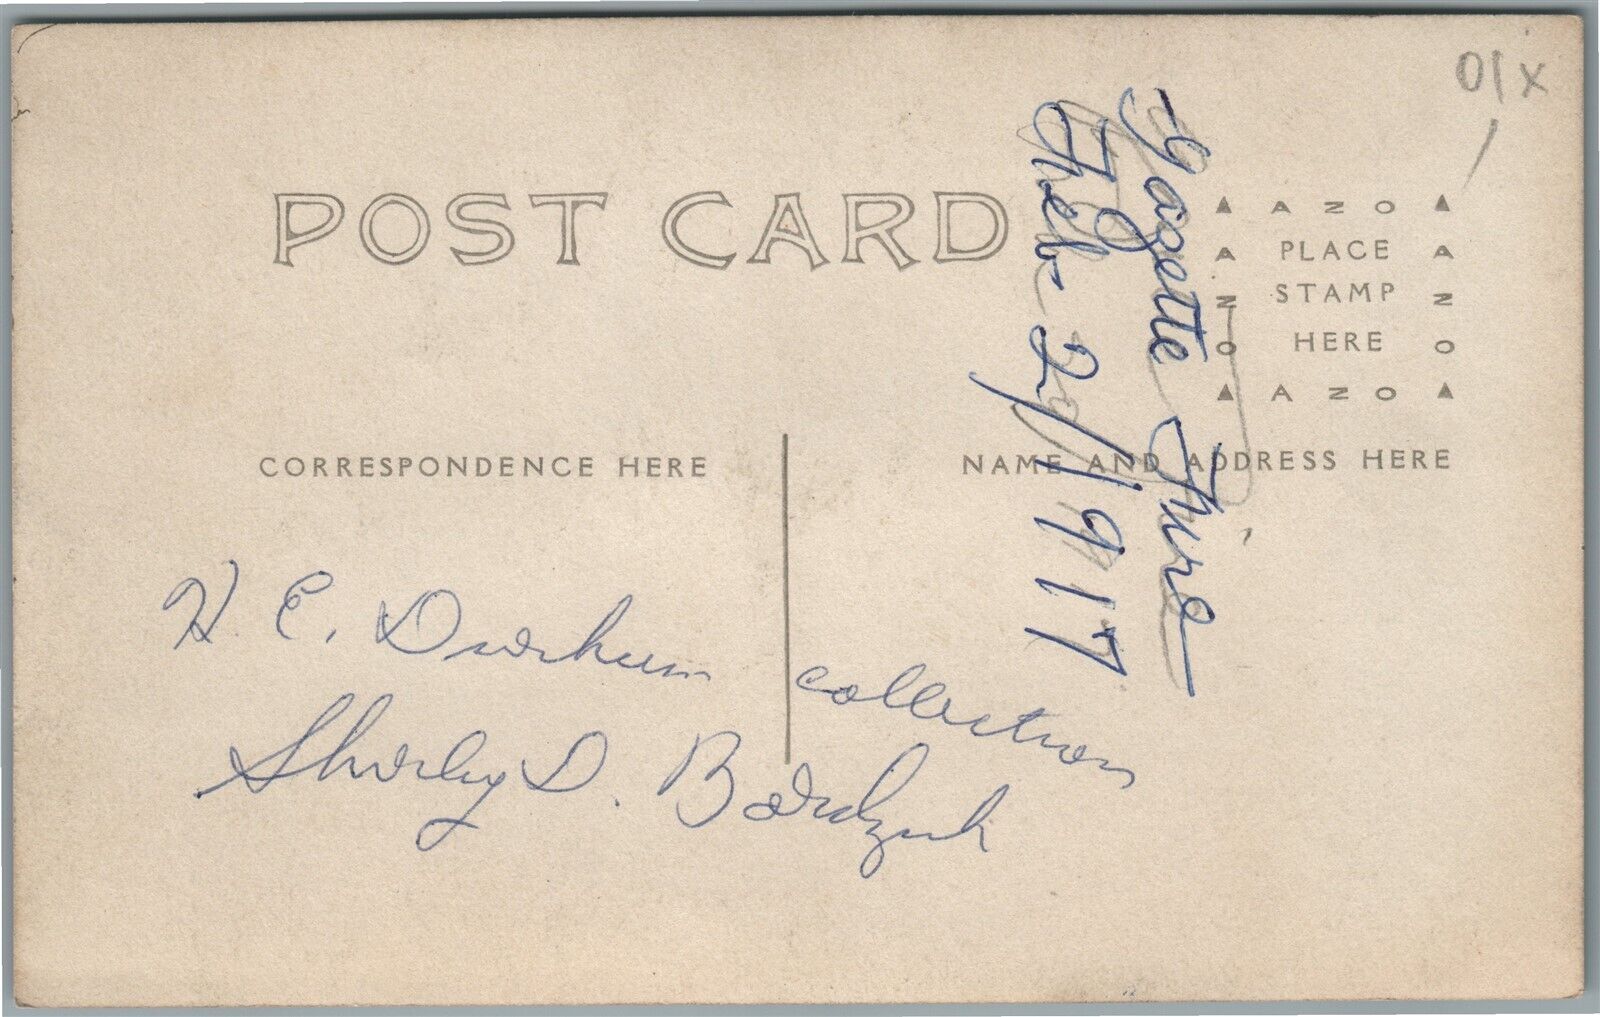 01X
POST CARD
AZO
PLACE
STAMP
HERE
AZO
AZO
AZO
CORRESPONDENCE HERE
NAME AND ADDRESS HERE
Gazette Fire
Feb 2/1917
H. E. Durhum collection
Shirley D.